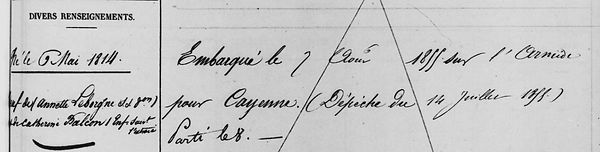 DIVERS RENSEIGNEMENTS.
Né le 6 Mai 1814
Embarqué le 7 Août 1855 sur l'Armide
pour Cayenne. (Dépêche du 14 Juillet 1855)
Parti le 8. —
Annette Leborgne
de Catherine Falcon 1 Enf.